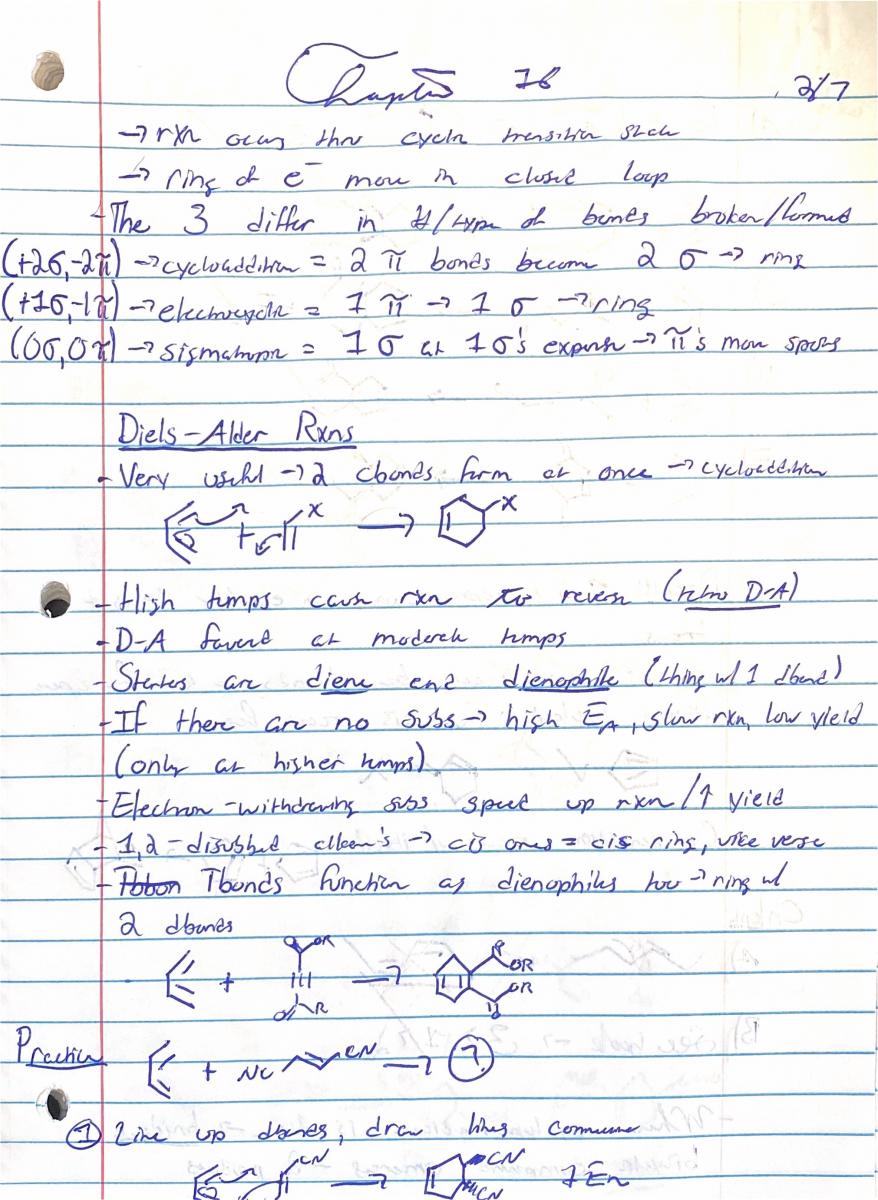 Chapter 16 2/7
→ rxn occurs thru cyclic transition state
→ ring of e⁻ move in closed loop
- The 3 differ in #/type of bonds broken/formed
(+2σ, -2π) → cycloaddition = 2 π bonds become 2 σ → ring
(+1σ, -1π) → electrocyclic = 1 π → 1 σ → ring
(0σ, 0π) → sigmatropic = 1 σ at 1 σ's expense → π's move spots
Diels-Alder Rxns
- Very useful → 2 cbonds form at once → cycloaddition
+ X → X
- High temps cause rxn to reverse (retro D-A)
- D-A favored at moderate temps
- Starters are diene and dienophile (thing w/ 1 dbond)
- If there are no subs → high EA, slow rxn, low yield
(only at higher temps)
- Electron-withdrawing subs speed up rxn/↑ yield
- 1,2-disubbed alkene's → cis ones = cis ring, vice versa
- Tbonds function as dienophiles too → ring w/
2 dbonds
O OR
+ → O OR
O R OR
O
Practice + NC CN → ?
① Line up dbonds, draw lines
CN → CN
CN 1 En